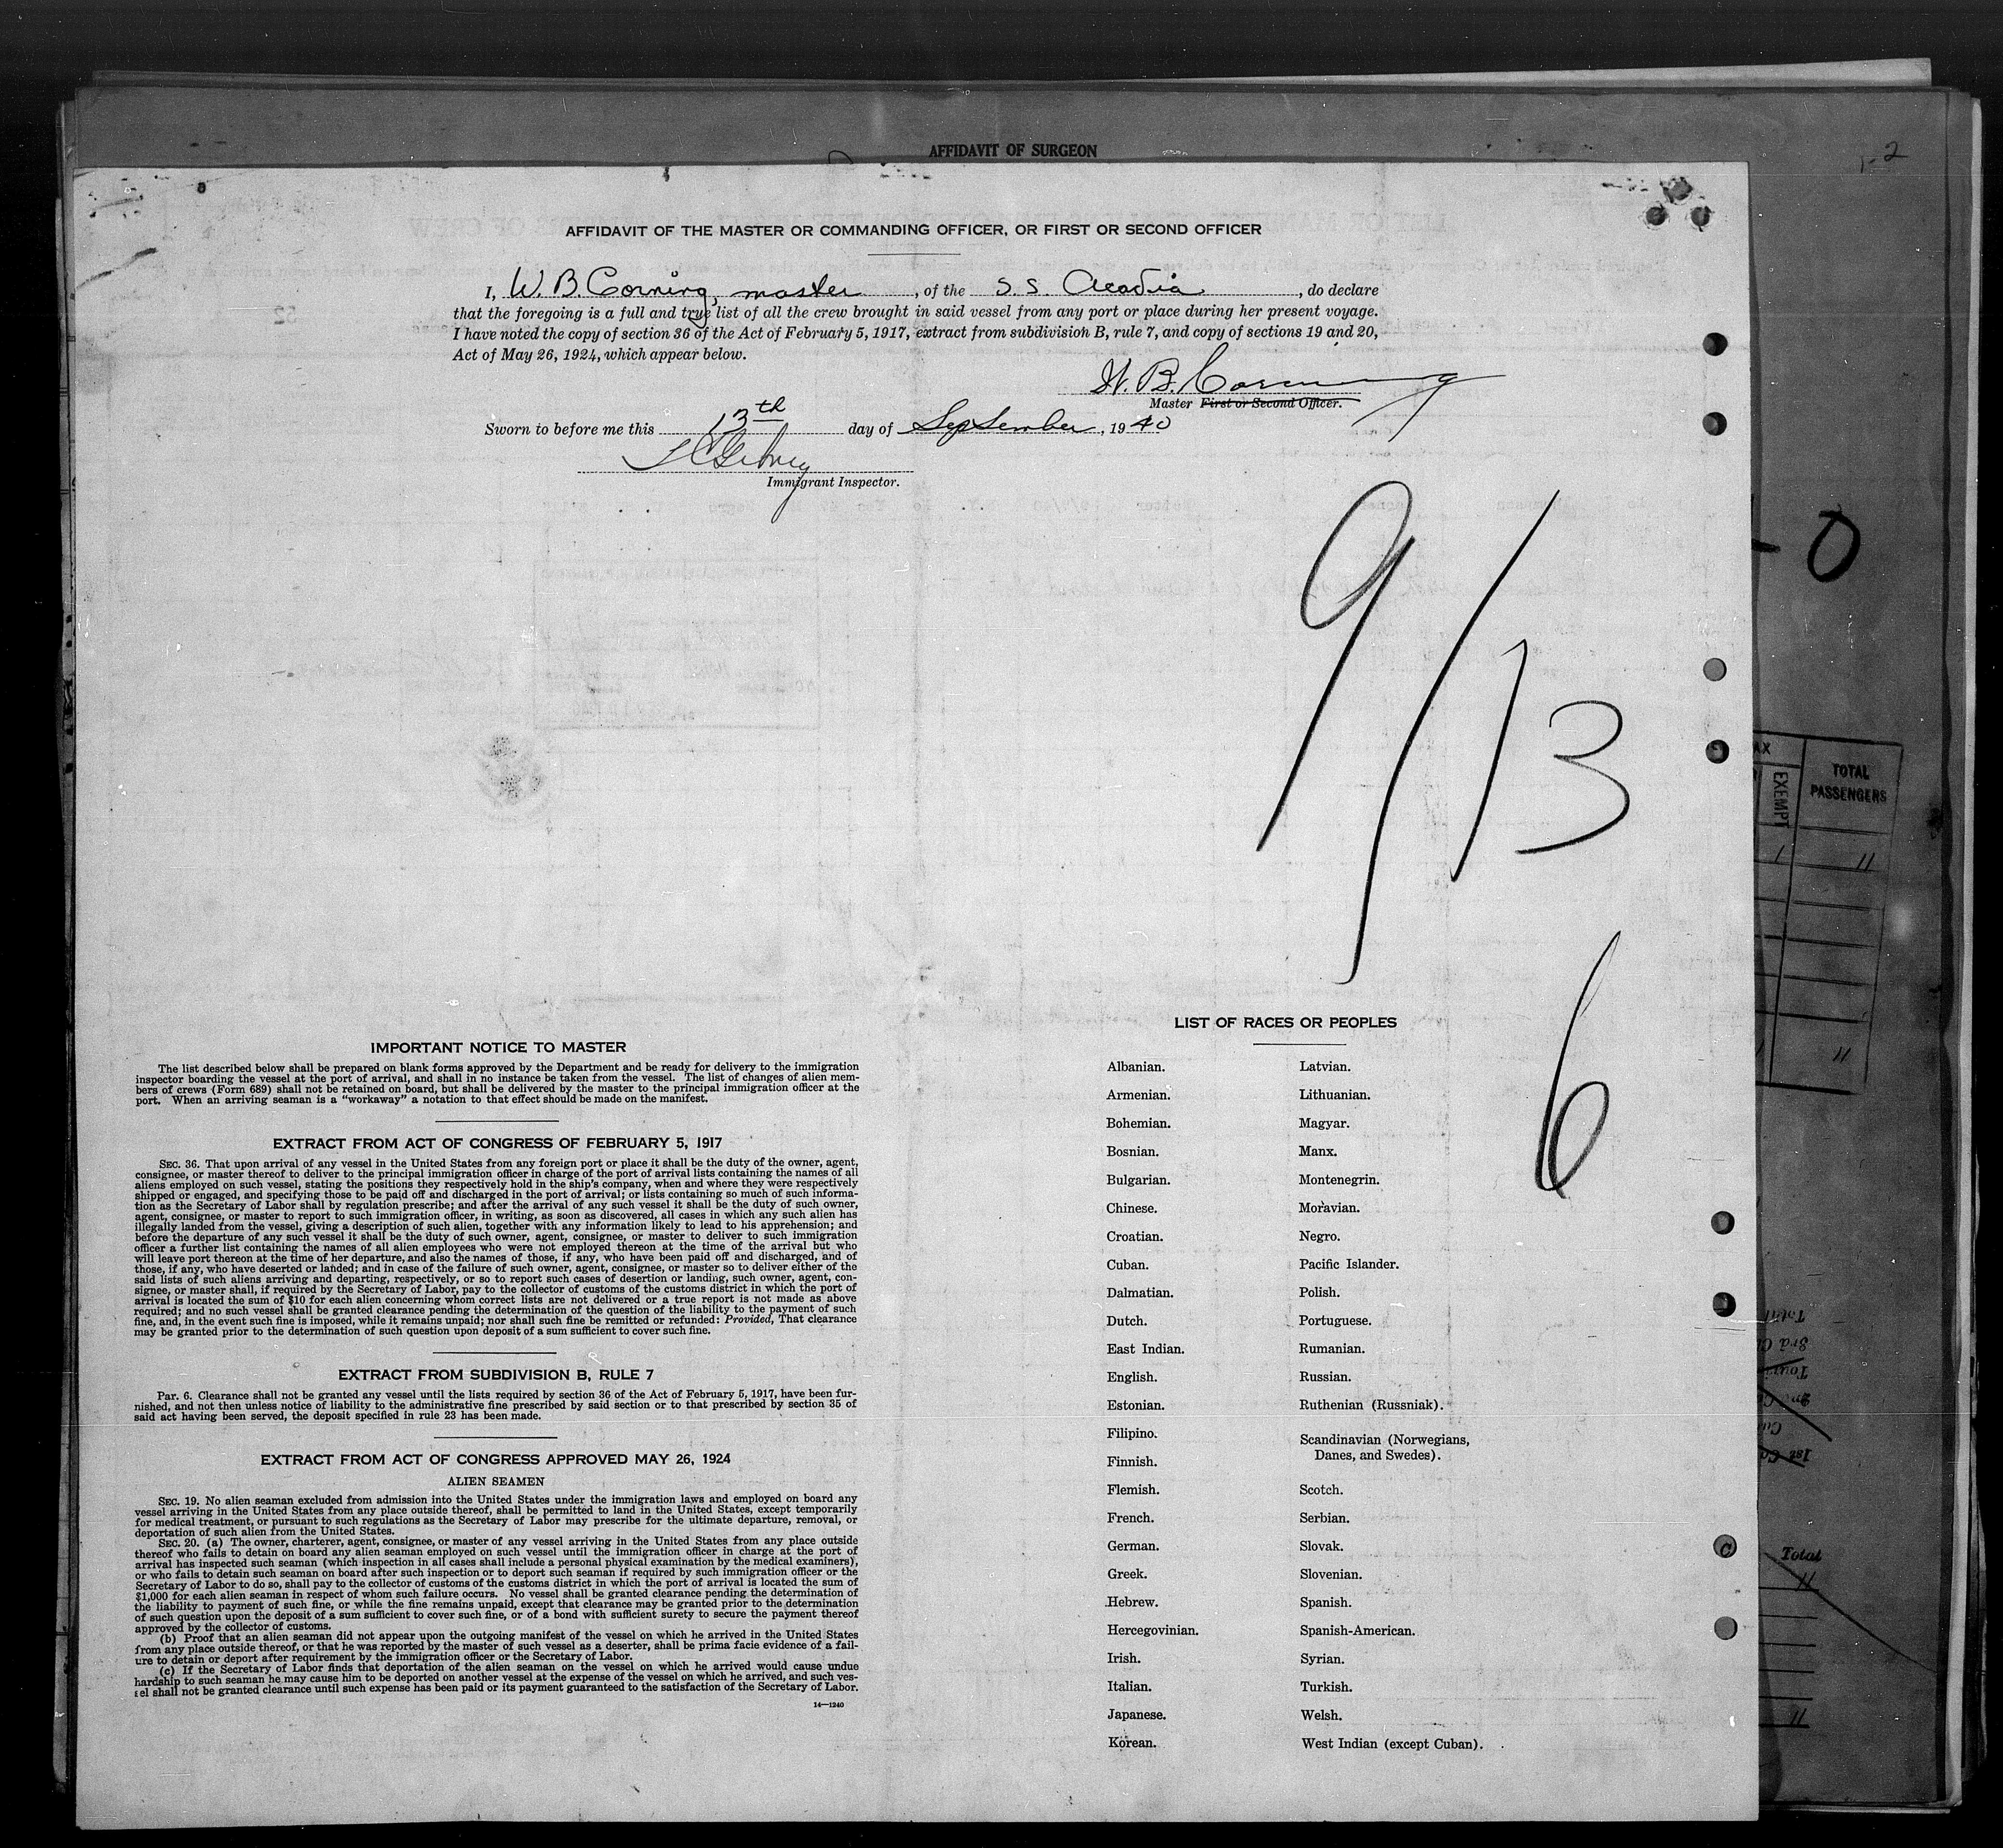 AFFIDAVIT OF SURGEON
1-2
AFFIDAVIT OF THE MASTER OR COMMANDING OFFICER, OR FIRST OR SECOND OFFICER
I, W. B. Corning, master, of the S. S. Acadia, do declare
that the foregoing is a full and true list of all the crew brought in said vessel from any port or place during her present voyage.
I have noted the copy of section 36 of the Act of February 5, 1917, extract from subdivision B, rule 7, and copy of sections 19 and 20,
Act of May 26, 1924, which appear below.
W. B. Corning
Master First or Second Officer.
Sworn to before me this 13th day of September, 1940
Immigrant Inspector.
9/13
6
- 0
EXEMPT
TOTAL
PASSENGERS
1
11
11
IMPORTANT NOTICE TO MASTER
The list described below shall be prepared on blank forms approved by the Department and be ready for delivery to the immigration
inspector boarding the vessel at the port of arrival, and shall in no instance be taken from the vessel. The list of changes of alien mem-
bers of crews (Form 689) shall not be retained on board, but shall be delivered by the master to the principal immigration officer at the
port. When an arriving seaman is a "workaway" a notation to that effect should be made on the manifest.
EXTRACT FROM ACT OF CONGRESS OF FEBRUARY 5, 1917
SEC. 36. That upon arrival of any vessel in the United States from any foreign port or place it shall be the duty of the owner, agent,
consignee, or master thereof to deliver to the principal immigration officer in charge of the port of arrival lists containing the names of all
aliens employed on such vessel, stating the positions they respectively hold in the ship's company, when and where they were respectively
shipped or engaged, and specifying those to be paid off and discharged in the port of arrival; or lists containing so much of such informa-
tion as the Secretary of Labor shall by regulation prescribe; and after the arrival of any such vessel it shall be the duty of such owner,
agent, consignee, or master to report to such immigration officer, in writing, as soon as discovered, all cases in which any such alien has
illegally landed from the vessel, giving a description of such alien, together with any information likely to lead to his apprehension; and
before the departure of any such vessel it shall be the duty of such owner, agent, consignee, or master to deliver to such immigration
officer a further list containing the names of all alien employees who were not employed thereon at the time of the arrival but who
will leave port thereon at the time of her departure, and also the names of those, if any, who have been paid off and discharged, and of
those, if any, who have deserted or landed; and in case of the failure of such owner, agent, consignee, or master so to deliver either of the
said lists of such aliens arriving and departing, respectively, or so to report such cases of desertion or landing, such owner, agent, con-
signee, or master shall, if required by the Secretary of Labor, pay to the collector of customs of the customs district in which the port of
arrival is located the sum of $10 for each alien concerning whom correct lists are not delivered or a true report is not made as above
required; and no such vessel shall be granted clearance pending the determination of the question of the liability to the payment of such
fine, and, in the event such fine is imposed, while it remains unpaid; nor shall such fine be remitted or refunded: Provided, That clearance
may be granted prior to the determination of such question upon deposit of a sum sufficient to cover such fine.
EXTRACT FROM SUBDIVISION B, RULE 7
Par. 6. Clearance shall not be granted any vessel until the lists required by section 36 of the Act of February 5, 1917, have been fur-
nished, and not then unless notice of liability to the administrative fine prescribed by said section or to that prescribed by section 35 of
said act having been served, the deposit specified in rule 23 has been made.
EXTRACT FROM ACT OF CONGRESS APPROVED MAY 26, 1924
ALIEN SEAMEN
SEC. 19. No alien seaman excluded from admission into the United States under the immigration laws and employed on board any
vessel arriving in the United States from any place outside thereof, shall be permitted to land in the United States, except temporarily
for medical treatment, or pursuant to such regulations as the Secretary of Labor may prescribe for the ultimate departure, removal, or
deportation of such alien from the United States.
SEC. 20. (a) The owner, charterer, agent, consignee, or master of any vessel arriving in the United States from any place outside
thereof who fails to detain on board any alien seaman employed on such vessel until the immigration officer in charge at the port of
arrival has inspected such seaman (which inspection in all cases shall include a personal physical examination by the medical examiners),
or who fails to detain such seaman on board after such inspection or to deport such seaman if required by such immigration officer or the
Secretary of Labor to do so, shall pay to the collector of customs of the customs district in which the port of arrival is located the sum of
$1,000 for each alien seaman in respect of whom such failure occurs. No vessel shall be granted clearance pending the determination of
the liability to payment of such fine, or while the fine remains unpaid, except that clearance may be granted prior to the determination
of such question upon the deposit of a sum sufficient to cover such fine, or of a bond with sufficient surety to secure the payment thereof
approved by the collector of customs.
(b) Proof that an alien seaman did not appear upon the outgoing manifest of the vessel on which he arrived in the United States
from any place outside thereof, or that he was reported by the master of such vessel as a deserter, shall be prima facie evidence of a fail-
ure to detain or deport after requirement by the immigration officer or the Secretary of Labor.
(c) If the Secretary of Labor finds that deportation of the alien seaman on the vessel on which he arrived would cause undue
hardship to such seaman he may cause him to be deported on another vessel at the expense of the vessel on which he arrived, and such ves-
sel shall not be granted clearance until such expense has been paid or its payment guaranteed to the satisfaction of the Secretary of Labor.
14—1240
LIST OF RACES OR PEOPLES
Albanian.
Armenian.
Bohemian.
Bosnian.
Bulgarian.
Chinese.
Croatian.
Cuban.
Dalmatian.
Dutch.
East Indian.
English.
Estonian.
Filipino.
Finnish.
Flemish.
French.
German.
Greek.
Hebrew.
Hercegovinian.
Irish.
Italian.
Japanese.
Korean.
Latvian.
Lithuanian.
Magyar.
Manx.
Montenegrin.
Moravian.
Negro.
Pacific Islander.
Polish.
Portuguese.
Rumanian.
Russian.
Ruthenian (Russniak).
Scandinavian (Norwegians,
Danes, and Swedes).
Scotch.
Serbian.
Slovak.
Slovenian.
Spanish.
Spanish-American.
Syrian.
Turkish.
Welsh.
West Indian (except Cuban).
Total
11
11